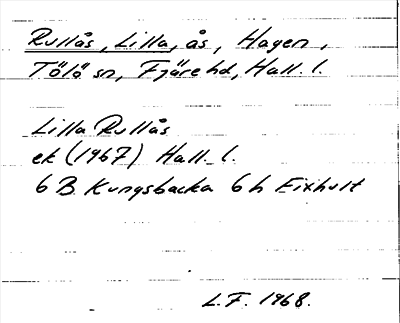 Rullås, Lilla, ås, Hagen,
Tölö sn, Fjäre hd, Hall. l.
Lilla Rullås
ek (1967) Hall. l.
6 B Kungsbacka 6 h Eixhult
L.F. 1968.